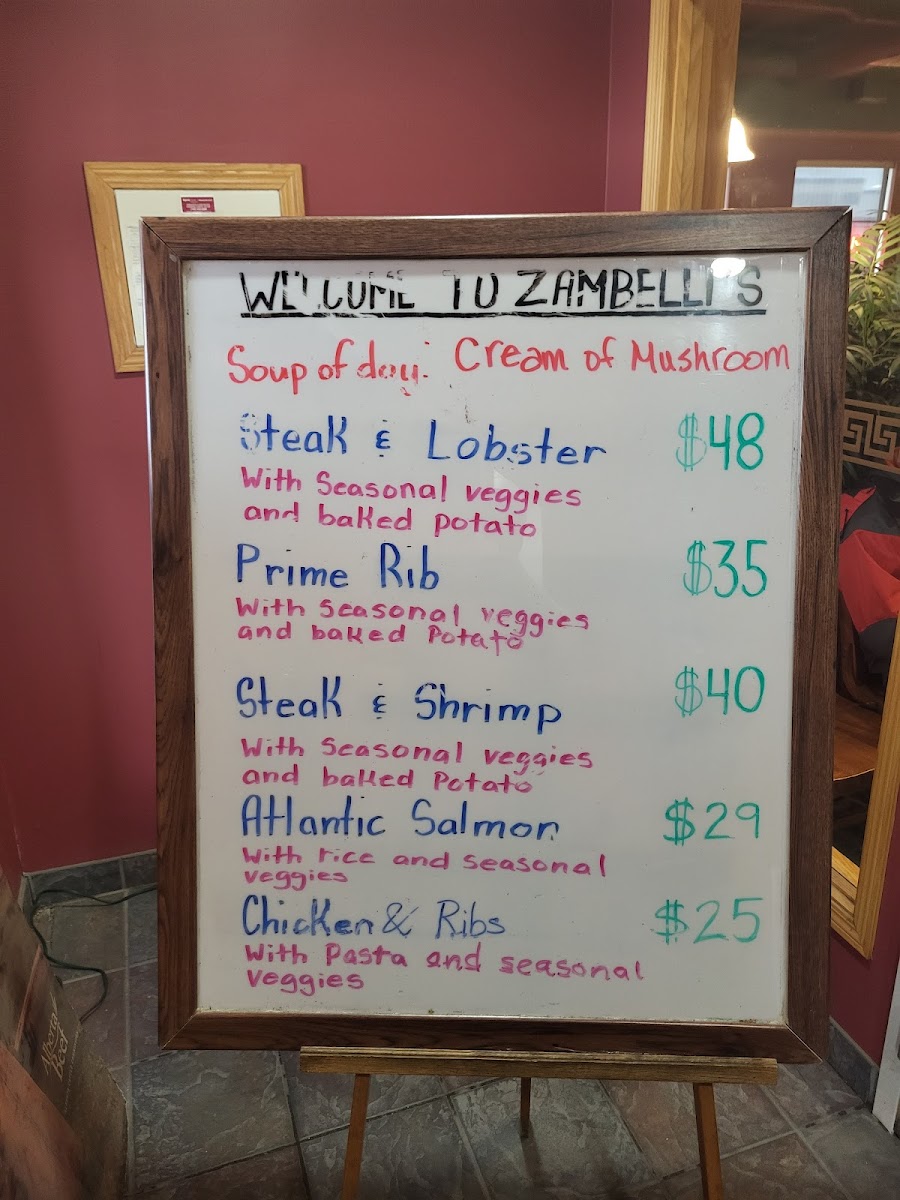 WELCOME TO ZAMBELLI'S
Soup of day: Cream of Mushroom
Steak & Lobster $48
With Seasonal veggies
and baked potato
Prime Rib $35
With Seasonal veggies
and baked Potato
Steak & Shrimp $40
With Seasonal veggies
and baked Potato
Atlantic Salmon $29
With rice and seasonal
veggies
Chicken & Ribs $25
With Pasta and seasonal
Veggies
Beef